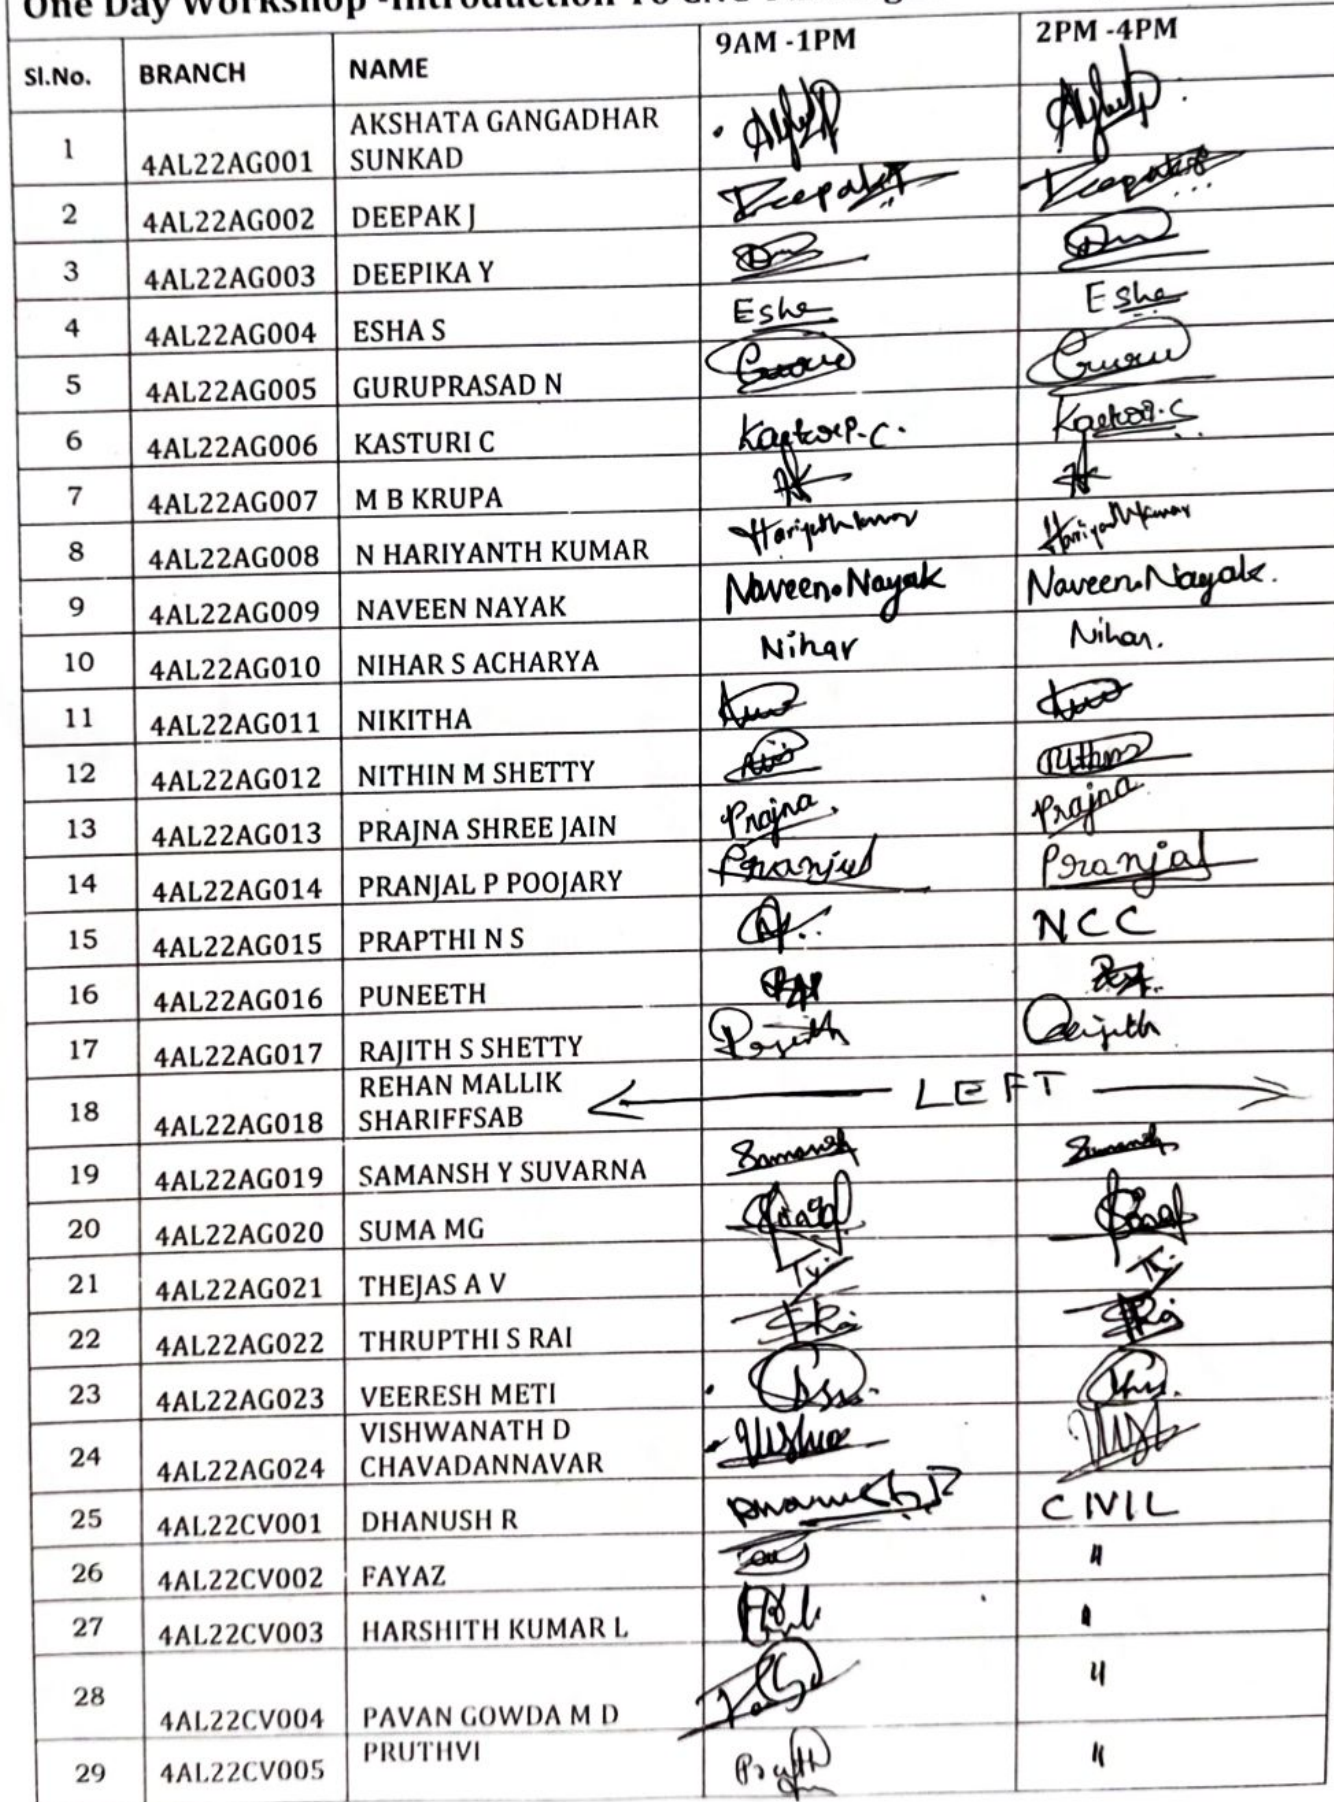 One Day Workshop -Introduction To
9AM -1PM 2PM -4PM
Sl.No. BRANCH NAME
1 4AL22AG001 AKSHATA GANGADHAR
SUNKAD
2 4AL22AG002 DEEPAK J Deepak
3 4AL22AG003 DEEPIKA Y
4 4AL22AG004 ESHA S Esha Esha
5 4AL22AG005 GURUPRASAD N Guru Guru
6 4AL22AG006 KASTURI C
7 4AL22AG007 M B KRUPA
8 4AL22AG008 N HARIYANTH KUMAR
9 4AL22AG009 NAVEEN NAYAK Naveen. Nayak Naveen. Nayak.
10 4AL22AG010 NIHAR S ACHARYA Nihar Nihar.
11 4AL22AG011 NIKITHA
12 4AL22AG012 NITHIN M SHETTY
13 4AL22AG013 PRAJNA SHREE JAIN Prajna. Prajna
14 4AL22AG014 PRANJAL P POOJARY Pranjal Pranjal
15 4AL22AG015 PRAPTHI N S NCC
16 4AL22AG016 PUNEETH
17 4AL22AG017 RAJITH S SHETTY Rajith
18 4AL22AG018 REHAN MALLIK
SHARIFFSAB LEFT
19 4AL22AG019 SAMANSH Y SUVARNA Samansh Samansh
20 4AL22AG020 SUMA MG
21 4AL22AG021 THEJAS A V
22 4AL22AG022 THRUPTHI S RAI
23 4AL22AG023 VEERESH METI
24 4AL22AG024 VISHWANATH D
CHAVADANNAVAR
25 4AL22CV001 DHANUSH R CIVIL
26 4AL22CV002 FAYAZ "
27 4AL22CV003 HARSHITH KUMAR L "
28 4AL22CV004 PAVAN GOWDA M D "
29 4AL22CV005 PRUTHVI "